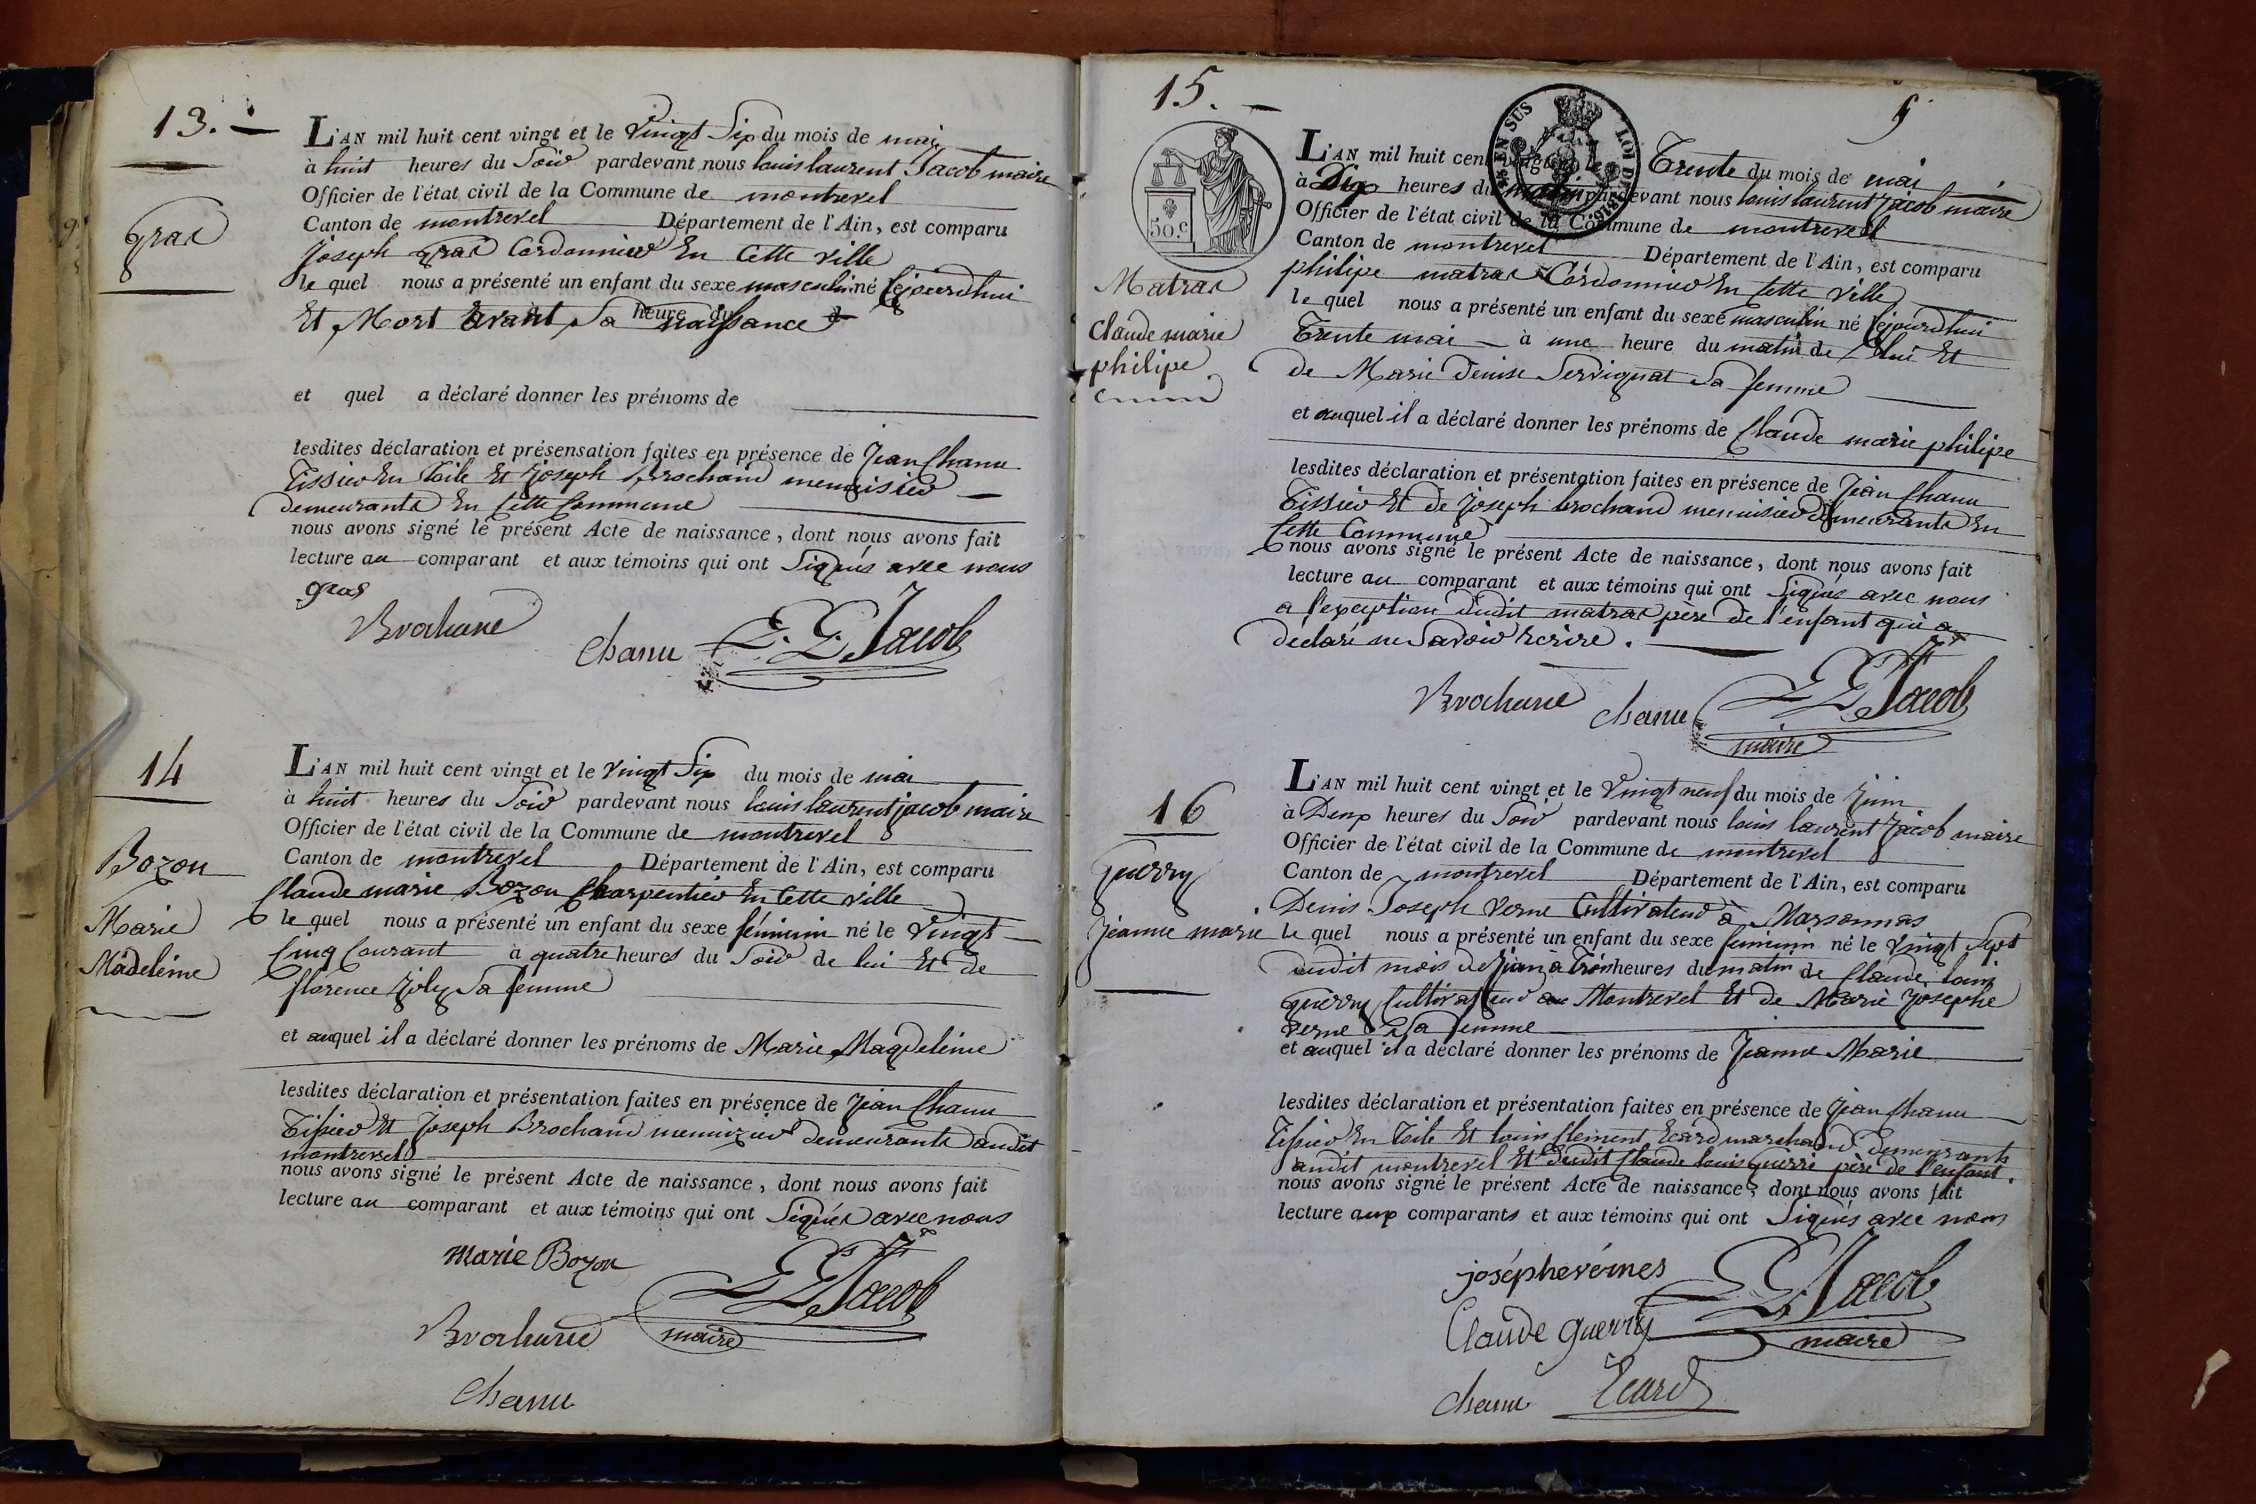 13. —
Gras
L'AN mil huit cent vingt et le Vingt Six du mois de mai
à huit heures du Soir pardevant nous louis laurent Jacob maire
Officier de l'état civil de la Commune de montrevel
Canton de montrevel Département de l'Ain, est comparu
Joseph Gras Cordonnier En Cette ville
le quel nous a présenté un enfant du sexe masculin né Cejourdhui
Et Mort avant Sa heure du naissance
et quel a déclaré donner les prénoms de
lesdites déclaration et présensation faites en présence de Jean Chanu
Tissier En toile Et Joseph Brochand menuisier
demeurants En Cette Commune
nous avons signé le présent Acte de naissance, dont nous avons fait
lecture au comparant et aux témoins qui ont Signés avec nous
gras
Brochand
Chanu
L. L. Jacob
14
Bozon
Marie
Madeleine
L'AN mil huit cent vingt et le vingt Six du mois de mai
à huit heures du Soir pardevant nous louis laurent jacob maire
Officier de l'état civil de la Commune de montrevel
Canton de montrevel Département de l'Ain, est comparu
Claude marie Bozon Charpentier En Cette ville
le quel nous a présenté un enfant du sexe féminin né le Vingt
Cinq Courant à quatre heures du Soir de lui Et de
florence Joly Sa femme
et auquel il a déclaré donner les prénoms de Marie Magdeleine
lesdites déclaration et présentation faites en présence de Jean Chanu
Tissier Et Joseph Brochand menuizier demeurants audit
montrevel
nous avons signé le présent Acte de naissance, dont nous avons fait
lecture au comparant et aux témoins qui ont Signés avec nous
Marie Bozon
L. L. Jacob
maire
Brochand
Chanu
15. —
5
50.c
EN SUS
LOI DE 1816
Matras
Claude marie
philipe
L'AN mil huit cent vingt et le Trente du mois de mai
à Dix heures du matin pardevant nous louis laurent Jacob maire
Officier de l'état civil de la Commune de montrevel
Canton de montrevel Département de l'Ain, est comparu
philipe matras Cordonnier En Cette ville
le quel nous a présenté un enfant du sexe masculin né Cejourdhui
Trente mai à une heure du matin de Lui Et
de Marie Denise Servignat Sa femme
et auquel il a déclaré donner les prénoms de Claude marie philipe
lesdites déclaration et présentation faites en présence de Jean Chanu
Tissier Et de Joseph brochand menuisier demeurants En
Cette Commune
nous avons signé le présent Acte de naissance, dont nous avons fait
lecture au comparant et aux témoins qui ont Signés avec nous
a l'exception dudit matras père de l'enfant qui a
declaré ne Savoir Ecrire.
Brochand
Chanu
L. L. Jacob
maire
16
Guerry
Jeanne marie
L'AN mil huit cent vingt et le Vingt neuf du mois de Juin
à Deux heures du Soir pardevant nous louis laurent Jacob maire
Officier de l'état civil de la Commune de montrevel
Canton de montrevel Département de l'Ain, est comparu
Denis Joseph Verne Cultivateur à Marsonnas
le quel nous a présenté un enfant du sexe féminin né le vingt Sept
dudit mois de Juin à Trois heures du matin de Claude louis
Guerry Cultivateur au Montrevel Et de Marie Josephe
Verne Sa femme
et auquel il a déclaré donner les prénoms de Jeanne Marie
lesdites déclaration et présentation faites en présence de Jean Chanu
Tissier En Toile Et louis Clement Ecard marchand Demeurants
audit montrevel Et dudit Claude louis Guerri père de l'enfant.
nous avons signé le présent Acte de naissance, dont nous avons fait
lecture aux comparants et aux témoins qui ont Signés avec nous
L. L. Jacob
maire
Claude Guerry
Chanu
Ecard